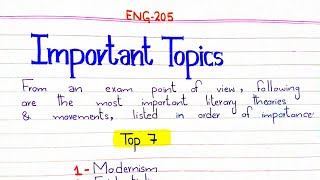 ENG-205
Important Topics
From an exam point of view, following
are the most important literary theories
& movements, listed in order of importance
Top 7
1- Modernism